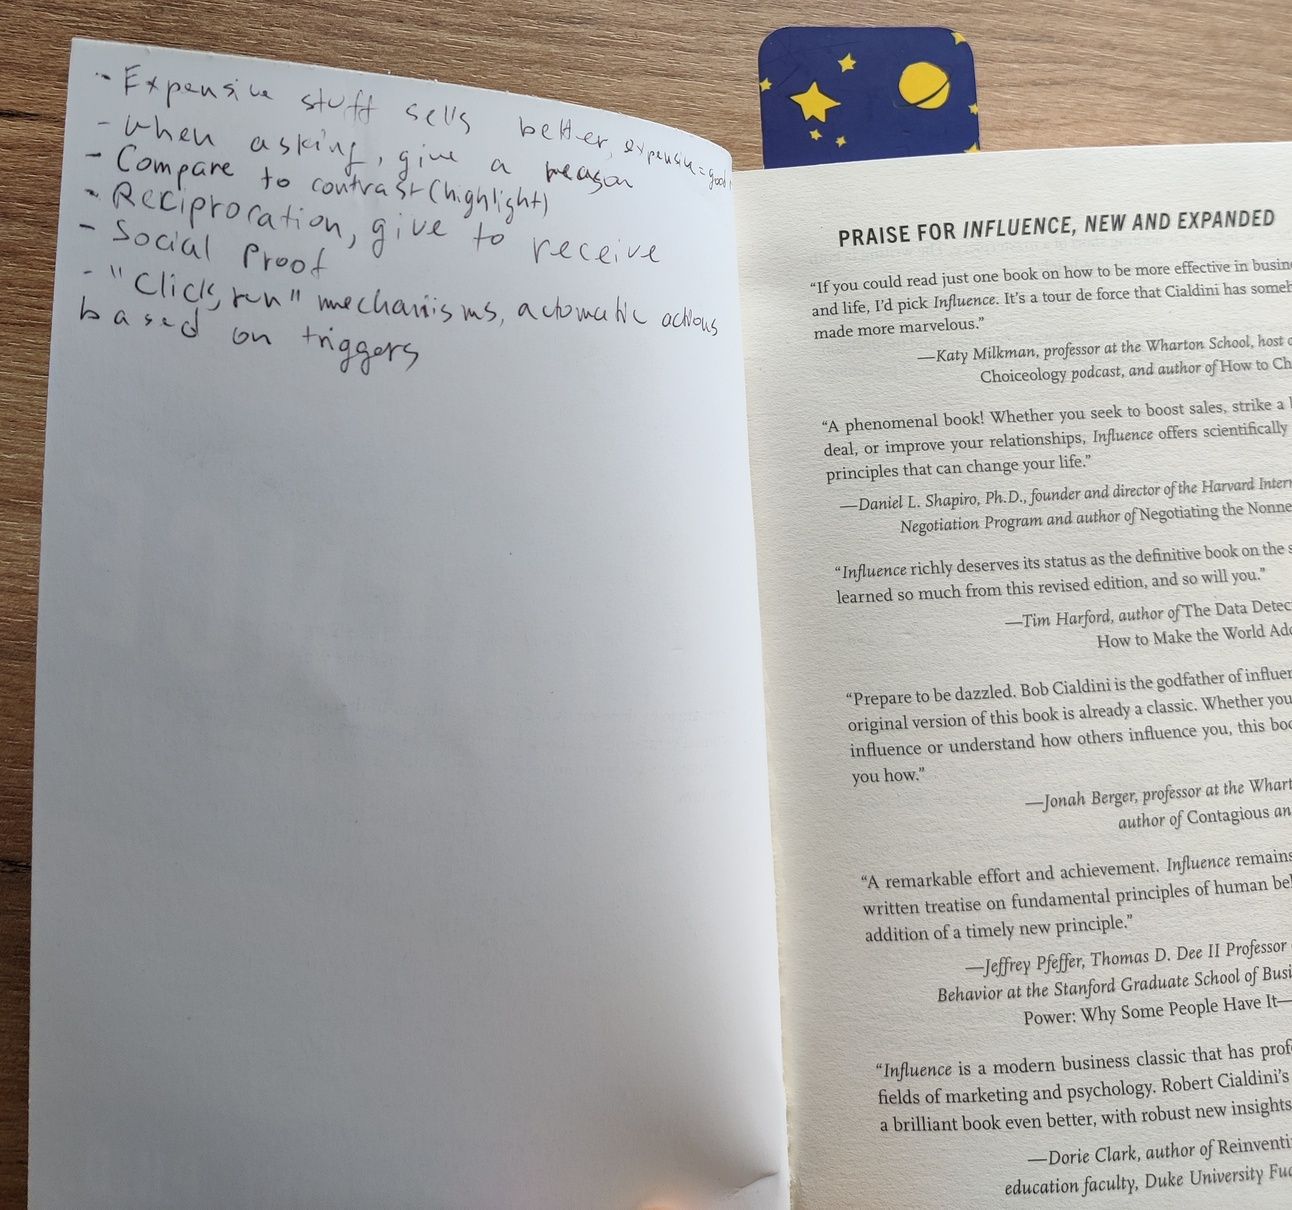 - Expensive stuff sells better, expensive = good
- When asking, give a reason
- Compare to contrast (highlight)
- Reciprocation, give to receive
- Social Proof
- "Click, run" mechanisms, automatic actions
based on triggers
PRAISE FOR INFLUENCE, NEW AND EXPANDED
“If you could read just one book on how to be more effective in busin
and life, I’d pick Influence. It’s a tour de force that Cialdini has someh
made more marvelous.”
—Katy Milkman, professor at the Wharton School, host o
Choiceology podcast, and author of How to Ch
“A phenomenal book! Whether you seek to boost sales, strike a
deal, or improve your relationships, Influence offers scientifically
principles that can change your life.”
—Daniel L. Shapiro, Ph.D., founder and director of the Harvard Intern
Negotiation Program and author of Negotiating the Nonne
“Influence richly deserves its status as the definitive book on the s
learned so much from this revised edition, and so will you.”
—Tim Harford, author of The Data Detec
How to Make the World Add
“Prepare to be dazzled. Bob Cialdini is the godfather of influen
original version of this book is already a classic. Whether you
influence or understand how others influence you, this boo
you how.”
—Jonah Berger, professor at the Whart
author of Contagious an
“A remarkable effort and achievement. Influence remains
written treatise on fundamental principles of human be
addition of a timely new principle.”
—Jeffrey Pfeffer, Thomas D. Dee II Professor
Behavior at the Stanford Graduate School of Busi
Power: Why Some People Have It—
“Influence is a modern business classic that has prof
fields of marketing and psychology. Robert Cialdini’s
a brilliant book even better, with robust new insights
—Dorie Clark, author of Reinventi
education faculty, Duke University Fuq